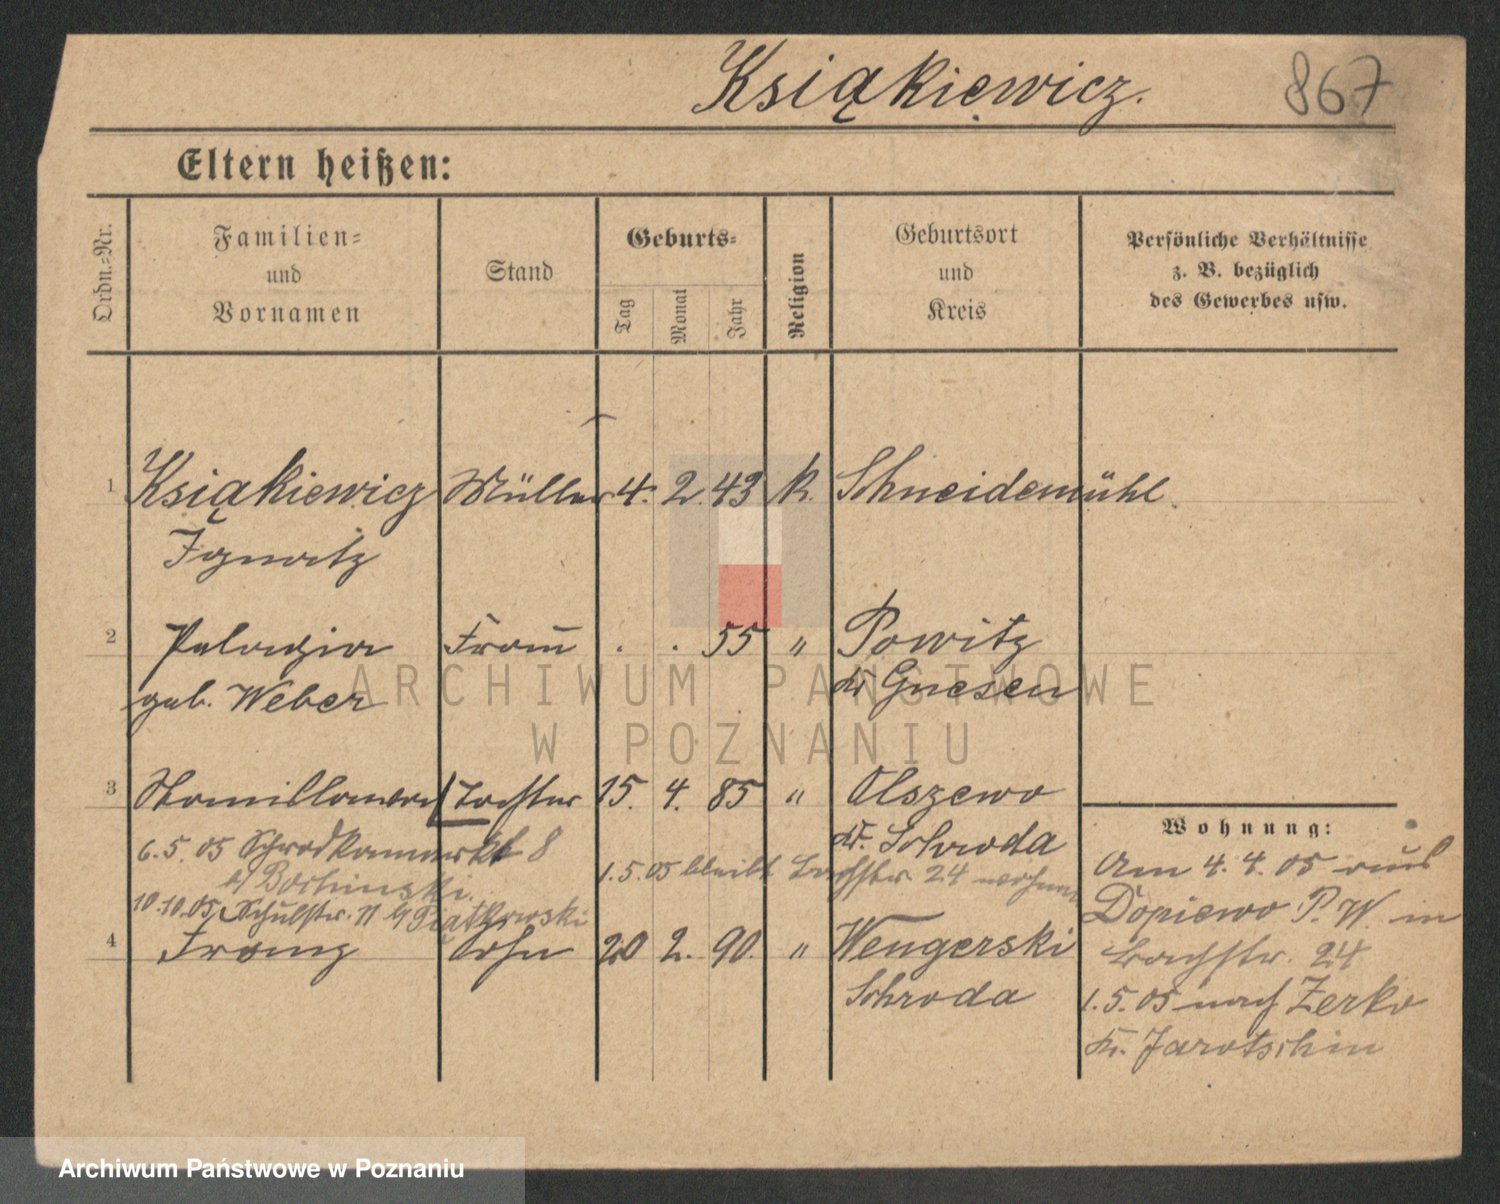 Książkiewicz.
867
Eltern heißen:
Ordn.=Nr.
Familien=
und
Vornamen
Stand
Geburts=
Tag
Monat
Jahr
Religion
Geburtsort
und
Kreis
Persönliche Verhältnisse
z. B. bezüglich
des Gewerbes usw.
1 Ksiąkiewicz Müller 4. 2. 43 k. Schneidemühl
Ignatz
2 Pelagia Frau . . 55 " Powitz
geb. Weber Kr Gnesen
3 Tochter 15. 4. 85 " Olszewo
Kr. Schroda
6.5.05 8
1.5.05 bleibt Bachstr 24 wohnen
10.10.05 Schulstr. 11 b/ Piątkowski
4 Franz Sohn 20 2. 90. " Wengerski
Schroda
Wohnung:
Am 4. 4. 05 aus
Dopiewo P. W. in
Bachstr. 24
1. 5. 05 nach Zerko
Kr. Jarotschin
ARCHIWUM PAŃSTWOWE
W POZNANIU
Archiwum Państwowe w Poznaniu